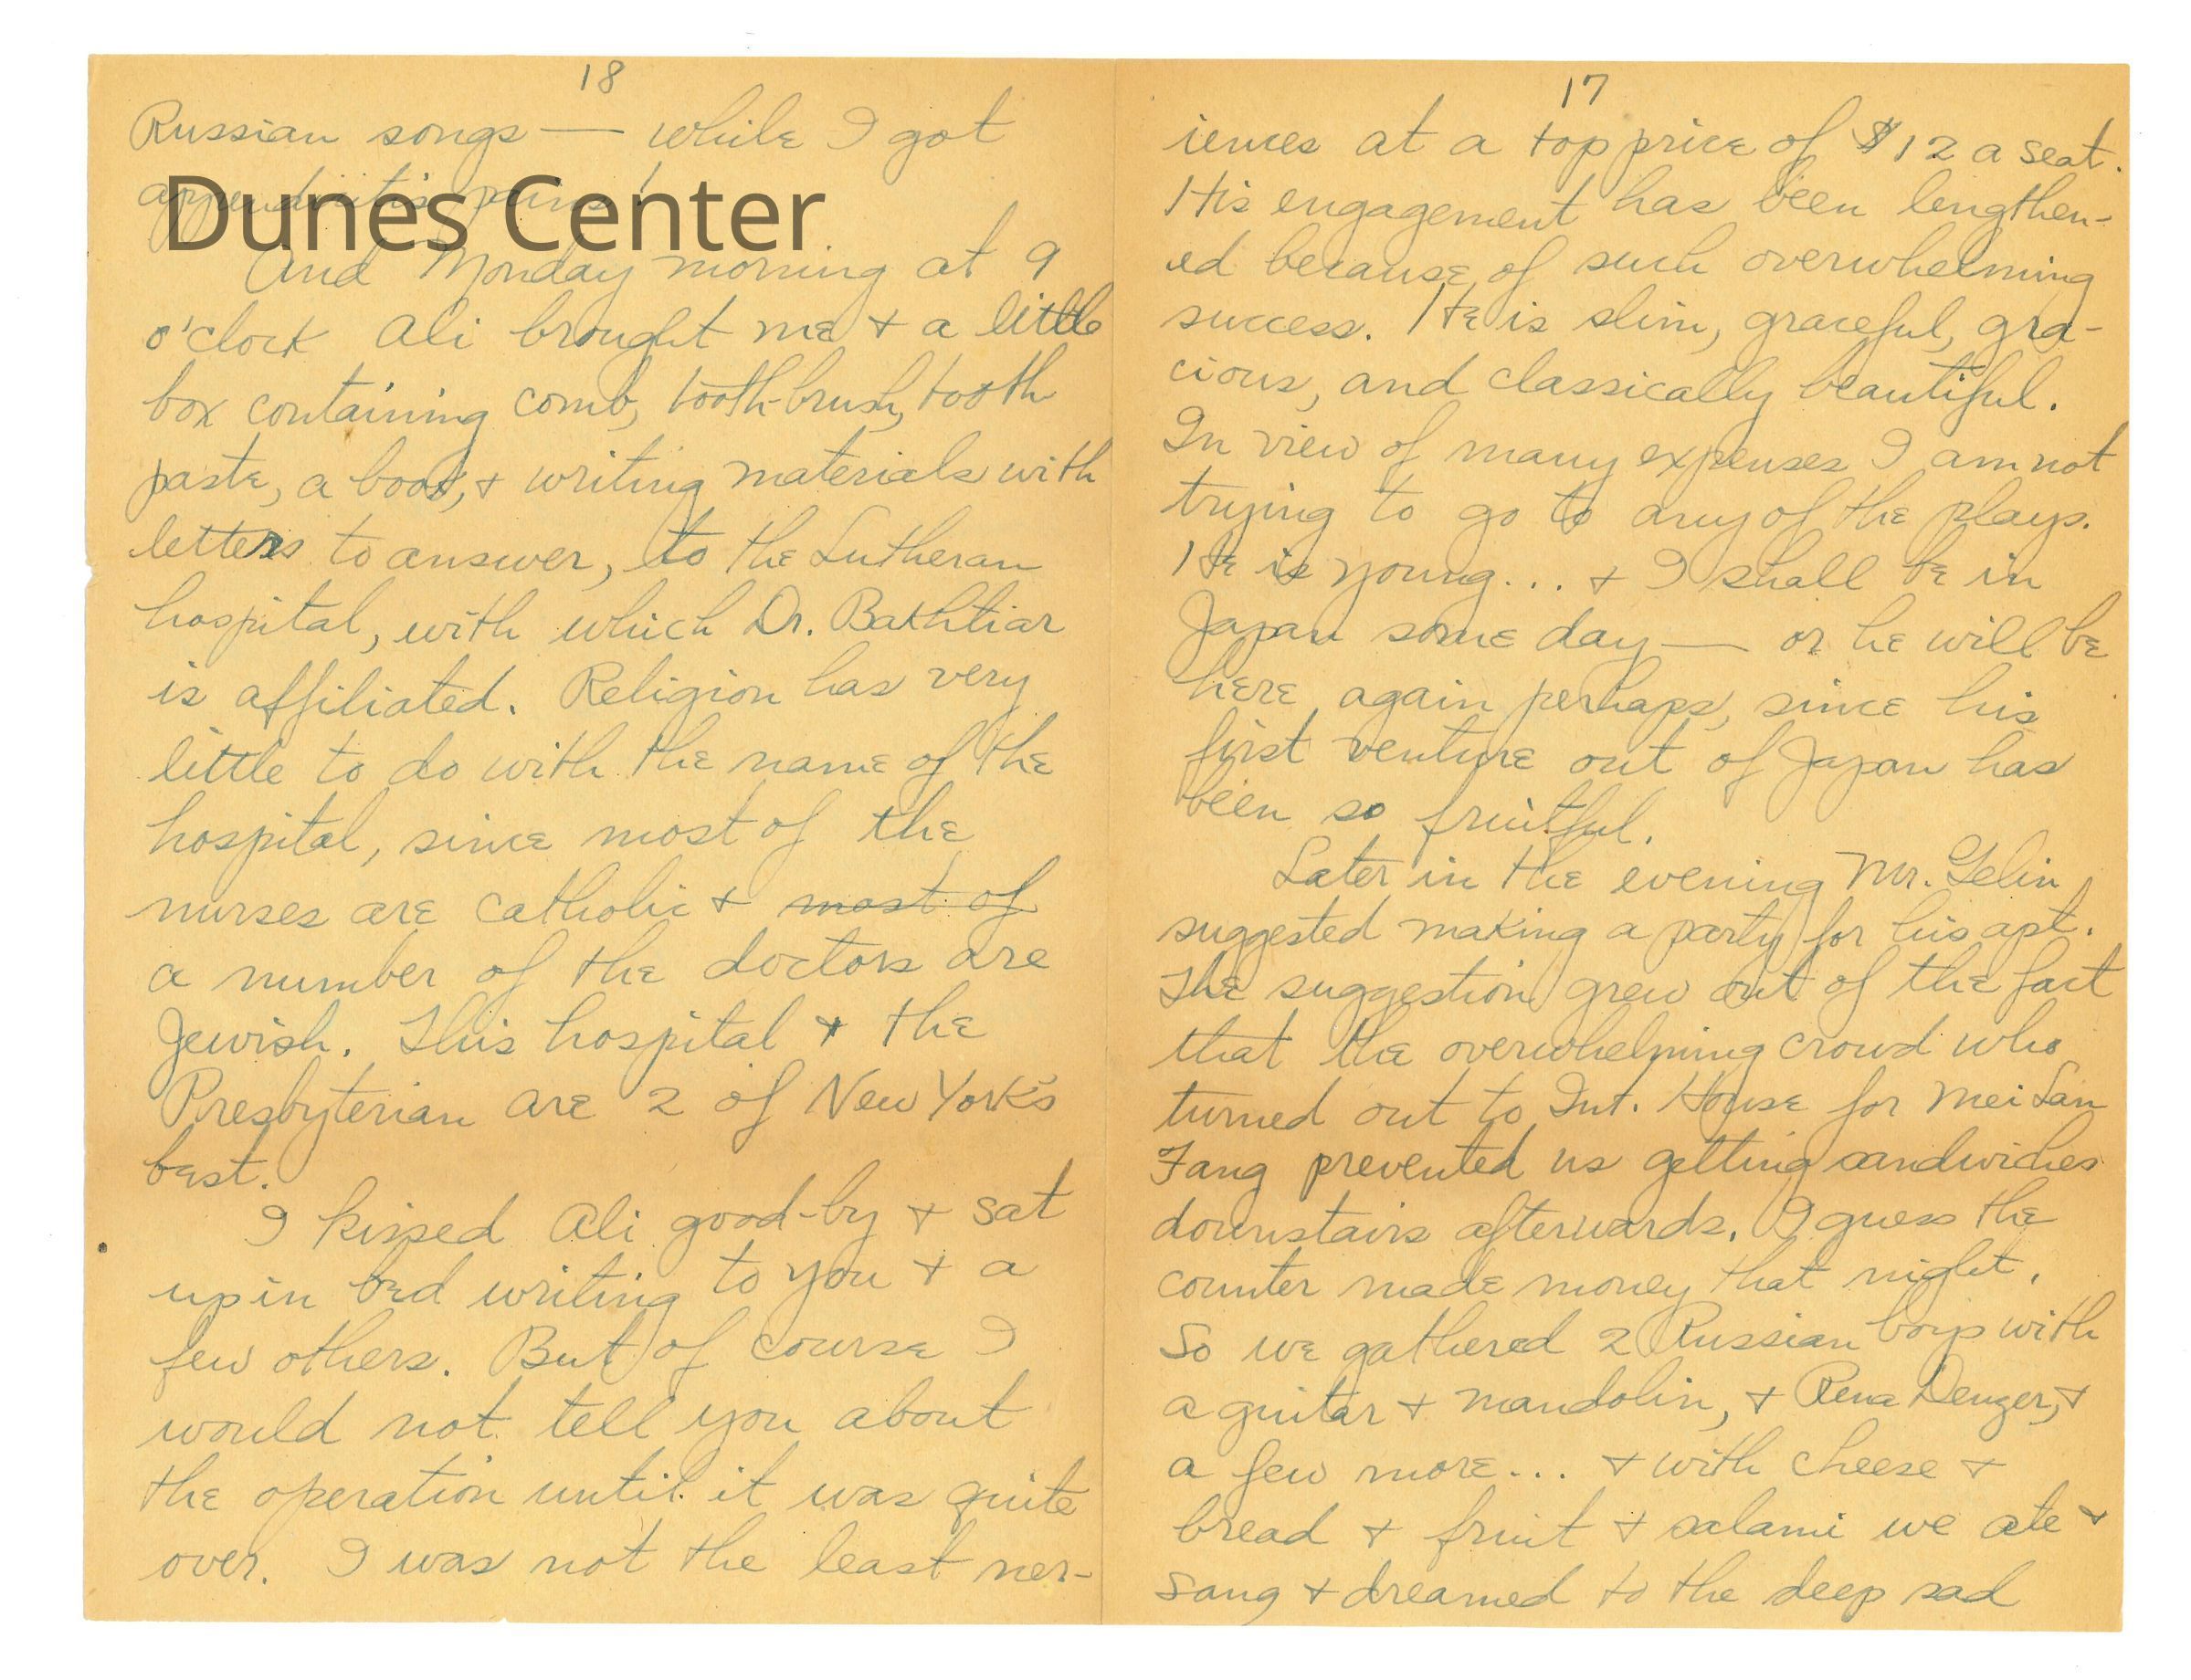 18
Russian songs — while I got
appendicitis pains!
Dunes Center
And Monday morning at 9
o'clock Ali brought me + a little
box containing comb, tooth-brush, tooth
paste, a book, + writing materials with
letters to answer, to the Lutheran
hospital, with which Dr. Bakhtiar
is affiliated. Religion has very
little to do with the name of the
hospital, since most of the
nurses are Catholic + most of
a number of the doctors are
Jewish. This hospital + the
Presbyterian are 2 of New York's
best.
I kissed Ali good-by + sat
up in bed writing to you + a
few others. But of course I
would not tell you about
the operation until it was quite
over. I was not the least ner-
17
iences at a top price of $12 a seat.
His engagement has been lengthen-
ed because of such overwhelming
success. He is slim, graceful, gra-
cious, and classically beautiful.
In view of many expenses I am not
trying to go to any of the plays.
He is young... + I shall be in
Japan some day — or he will be
here again perhaps, since his
first venture out of Japan has
been so fruitful.
Later in the evening Mr. Gelin
suggested making a party for his apt.
The suggestion grew out of the fact
that the overwhelming crowd who
turned out to Int. House for Mei Lan
Fang prevented us getting sandwiches
downstairs afterwards. I guess the
counter made money that night.
So we gathered 2 Russian boys with
a guitar + mandolin, + Rena Denzer, +
a few more... + with cheese +
bread + fruit + salami we ate +
sang + dreamed to the deep sad